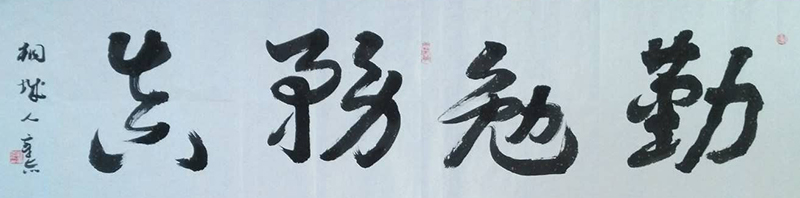 勤勉務真
桐城人